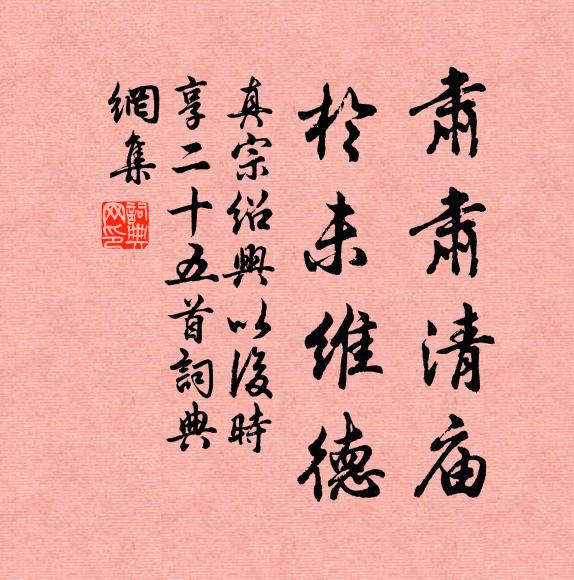 肅肅清庙
於未維德
真宗紹興以後時
享二十五首詞典
網集
詞典
网印